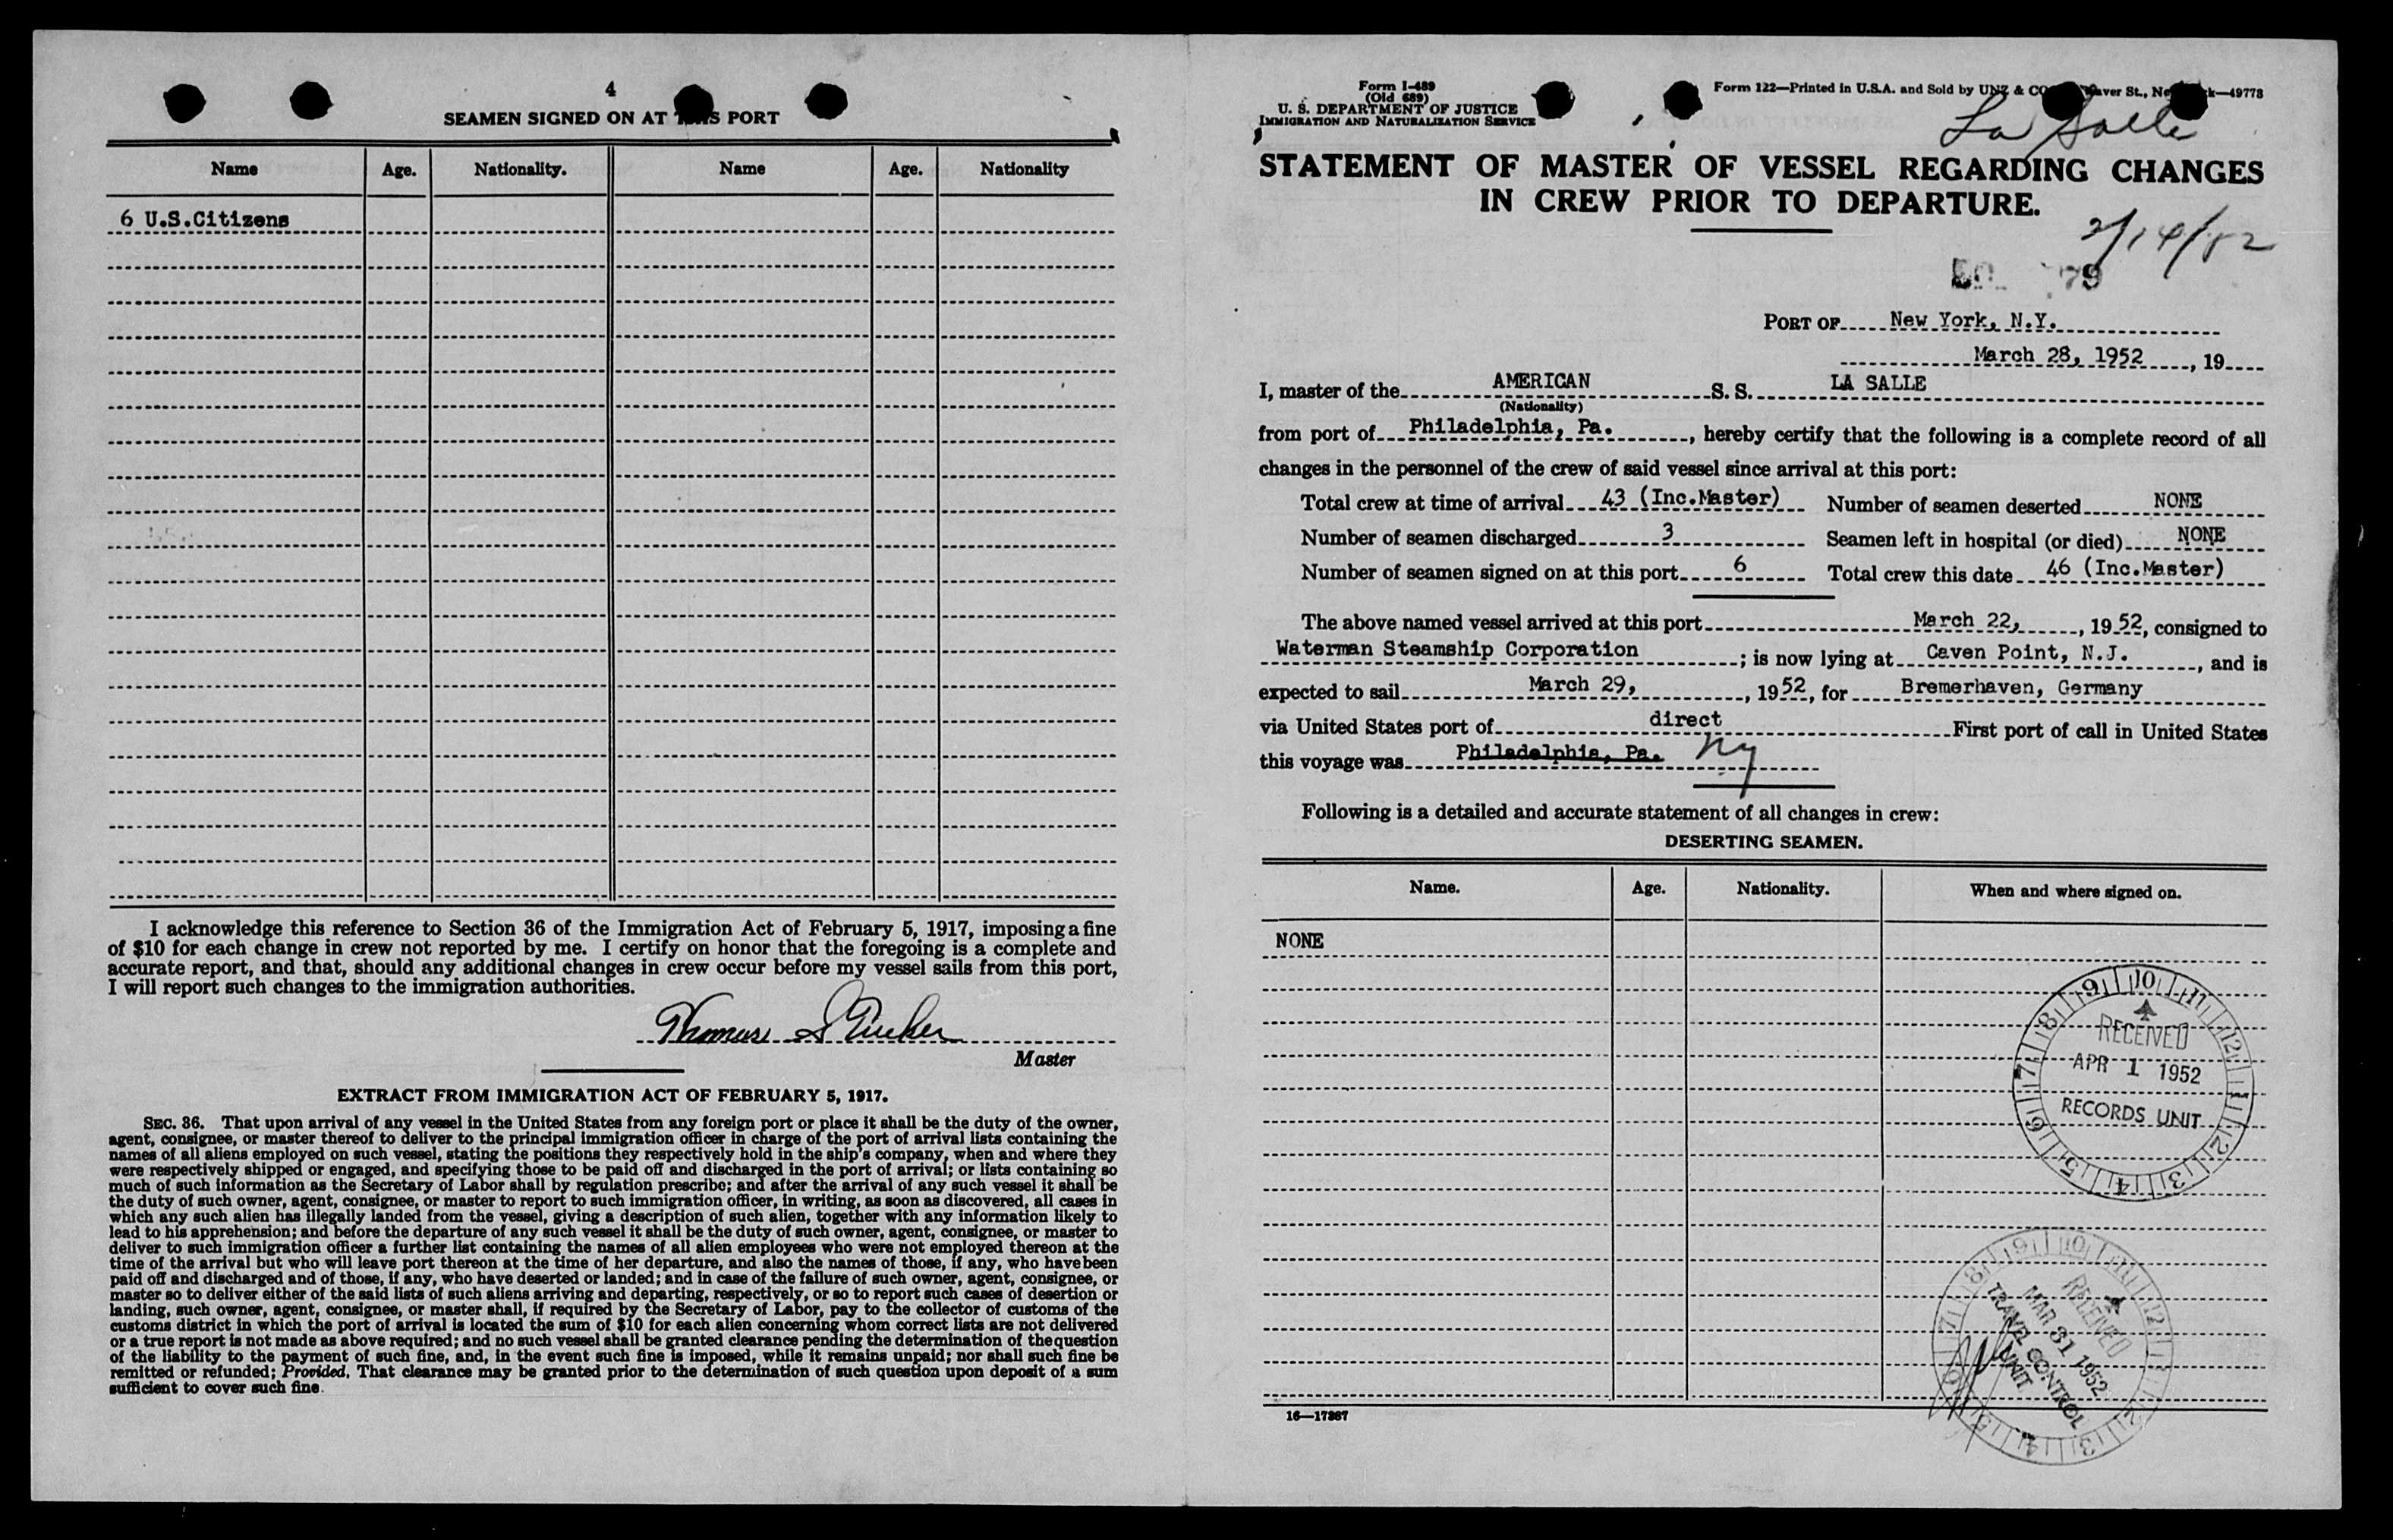 4
SEAMEN SIGNED ON AT THIS PORT
Name Age. Nationality. Name Age. Nationality
6 U.S.Citizens
I acknowledge this reference to Section 36 of the Immigration Act of February 5, 1917, imposing a fine
of $10 for each change in crew not reported by me. I certify on honor that the foregoing is a complete and
accurate report, and that, should any additional changes in crew occur before my vessel sails from this port,
I will report such changes to the immigration authorities.
Thomas S Tucker
Master
EXTRACT FROM IMMIGRATION ACT OF FEBRUARY 5, 1917.
SEC. 36. That upon arrival of any vessel in the United States from any foreign port or place it shall be the duty of the owner,
agent, consignee, or master thereof to deliver to the principal immigration officer in charge of the port of arrival lists containing the
names of all aliens employed on such vessel, stating the positions they respectively hold in the ship's company, when and where they
were respectively shipped or engaged, and specifying those to be paid off and discharged in the port of arrival; or lists containing so
much of such information as the Secretary of Labor shall by regulation prescribe; and after the arrival of any such vessel it shall be
the duty of such owner, agent, consignee, or master to report to such immigration officer, in writing, as soon as discovered, all cases in
which any such alien has illegally landed from the vessel, giving a description of such alien, together with any information likely to
lead to his apprehension; and before the departure of any such vessel it shall be the duty of such owner, agent, consignee, or master to
deliver to such immigration officer a further list containing the names of all alien employees who were not employed thereon at the
time of the arrival but who will leave port thereon at the time of her departure, and also the names of those, if any, who have been
paid off and discharged and of those, if any, who have deserted or landed; and in case of the failure of such owner, agent, consignee, or
master so to deliver either of the said lists of such aliens arriving and departing, respectively, or so to report such cases of desertion or
landing, such owner, agent, consignee, or master shall, if required by the Secretary of Labor, pay to the collector of customs of the
customs district in which the port of arrival is located the sum of $10 for each alien concerning whom correct lists are not delivered
or a true report is not made as above required; and no such vessel shall be granted clearance pending the determination of the question
of the liability to the payment of such fine, and, in the event such fine is imposed, while it remains unpaid; nor shall such fine be
remitted or refunded; Provided, That clearance may be granted prior to the determination of such question upon deposit of a sum
sufficient to cover such fine.
Form I-489
(Old 689)
U. S. DEPARTMENT OF JUSTICE
IMMIGRATION AND NATURALIZATION SERVICE
Form 122—Printed in U.S.A. and Sold by UNZ & CO 49778
La Salle
STATEMENT OF MASTER OF VESSEL REGARDING CHANGES
IN CREW PRIOR TO DEPARTURE.
2/14/52
79
PORT OF New York, N.Y.
March 28, 1952, 19
I, master of the AMERICAN S. S. LA SALLE
(Nationality)
from port of Philadelphia, Pa., hereby certify that the following is a complete record of all
changes in the personnel of the crew of said vessel since arrival at this port:
Total crew at time of arrival 43 (Inc.Master) Number of seamen deserted NONE
Number of seamen discharged 3 Seamen left in hospital (or died) NONE
Number of seamen signed on at this port 6 Total crew this date 46 (Inc.Master)
The above named vessel arrived at this port March 22, , 1952, consigned to
Waterman Steamship Corporation ; is now lying at Caven Point, N.J. , and is
expected to sail March 29, , 1952, for Bremerhaven, Germany
via United States port of direct First port of call in United States
this voyage was Philadelphia, Pa. NY
Following is a detailed and accurate statement of all changes in crew:
DESERTING SEAMEN.
Name. Age. Nationality. When and where signed on.
NONE
9 10 11 12 1 2 3 4 5 6 7 8
RECEIVED
APR 1 1952
RECORDS UNIT
9 10 11 12 1 2 3 4 5 6 7 8
RECEIVED
MAR 31 1952
TRAVEL CONTROL
UNIT
16—17387